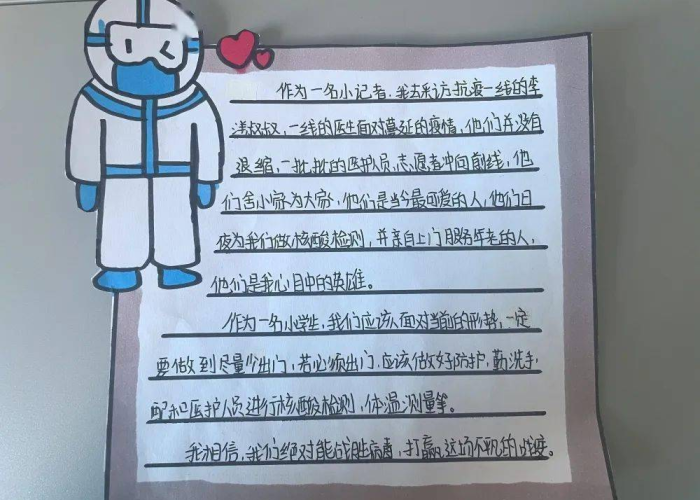 作为一名小记者，我去采访抗疫一线的李
叔叔，一线的医生面对蔓延的疫情，他们并没有
退缩，一批批的医护人员，志愿者冲向前线，他
们舍小家为大家，他们是当今最可爱的人，他们日
夜为我们做核酸检测，并亲自上门服务年老的人，
他们是我心目中的英雄。
作为一名小学生，我们应该面对当前的形势，一定
要做到尽量少出门，若必须出门，应该做好防护，勤洗手，
配和医护人员进行核酸检测，体温测量等。
我相信，我们绝对能战胜病毒，打赢这场不平凡的战疫。